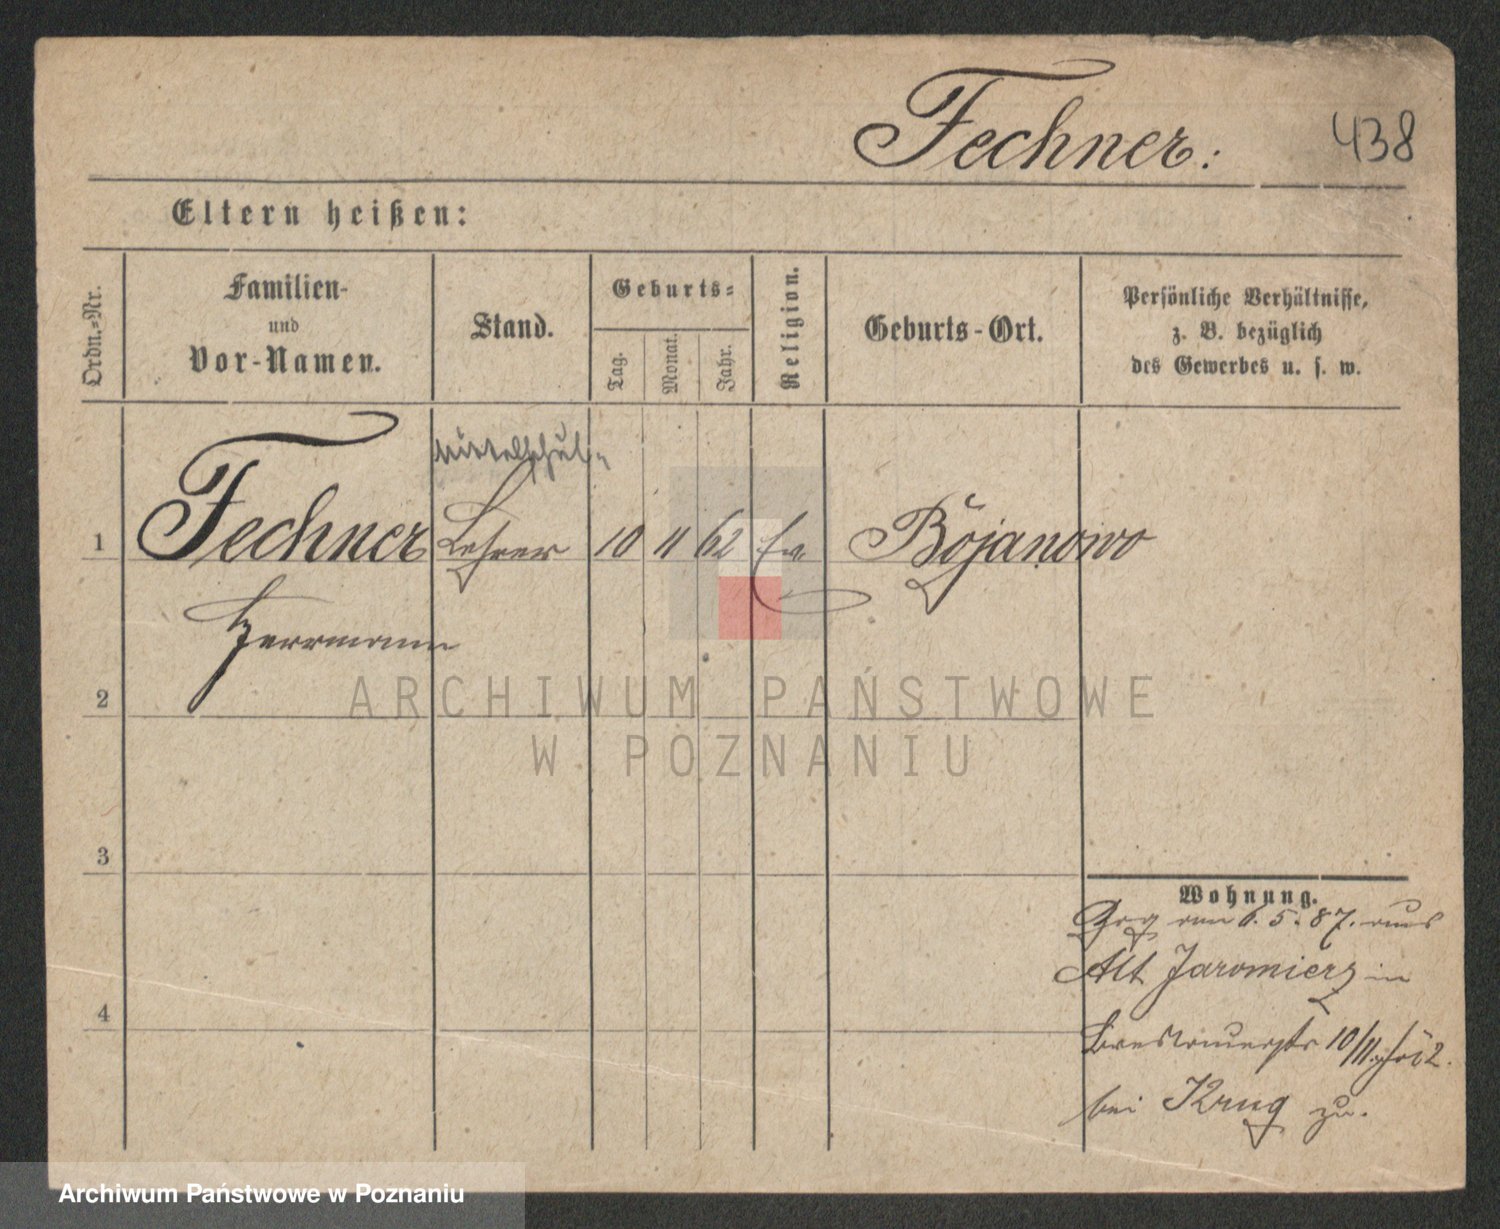 Fechner:
438
Eltern heißen:
Ordn.-Nr.
Familien-
und
Vor-Namen.
Stand.
Geburts-
Tag.
Monat.
Jahr.
Religion.
Geburts-Ort.
Persönliche Verhältnisse,
z. B. bezüglich
des Gewerbes u. s. w.
Mittelschul-
1 Fechner Lehrer 10 11 62 Ev. Bojanowo
Herrmann
2
3
4
Wohnung.
6.5.87. aus
Alt Jaromierz in
10/11
bei Krug zu.
ARCHIWUM PAŃSTWOWE
W POZNANIU
Archiwum Państwowe w Poznaniu